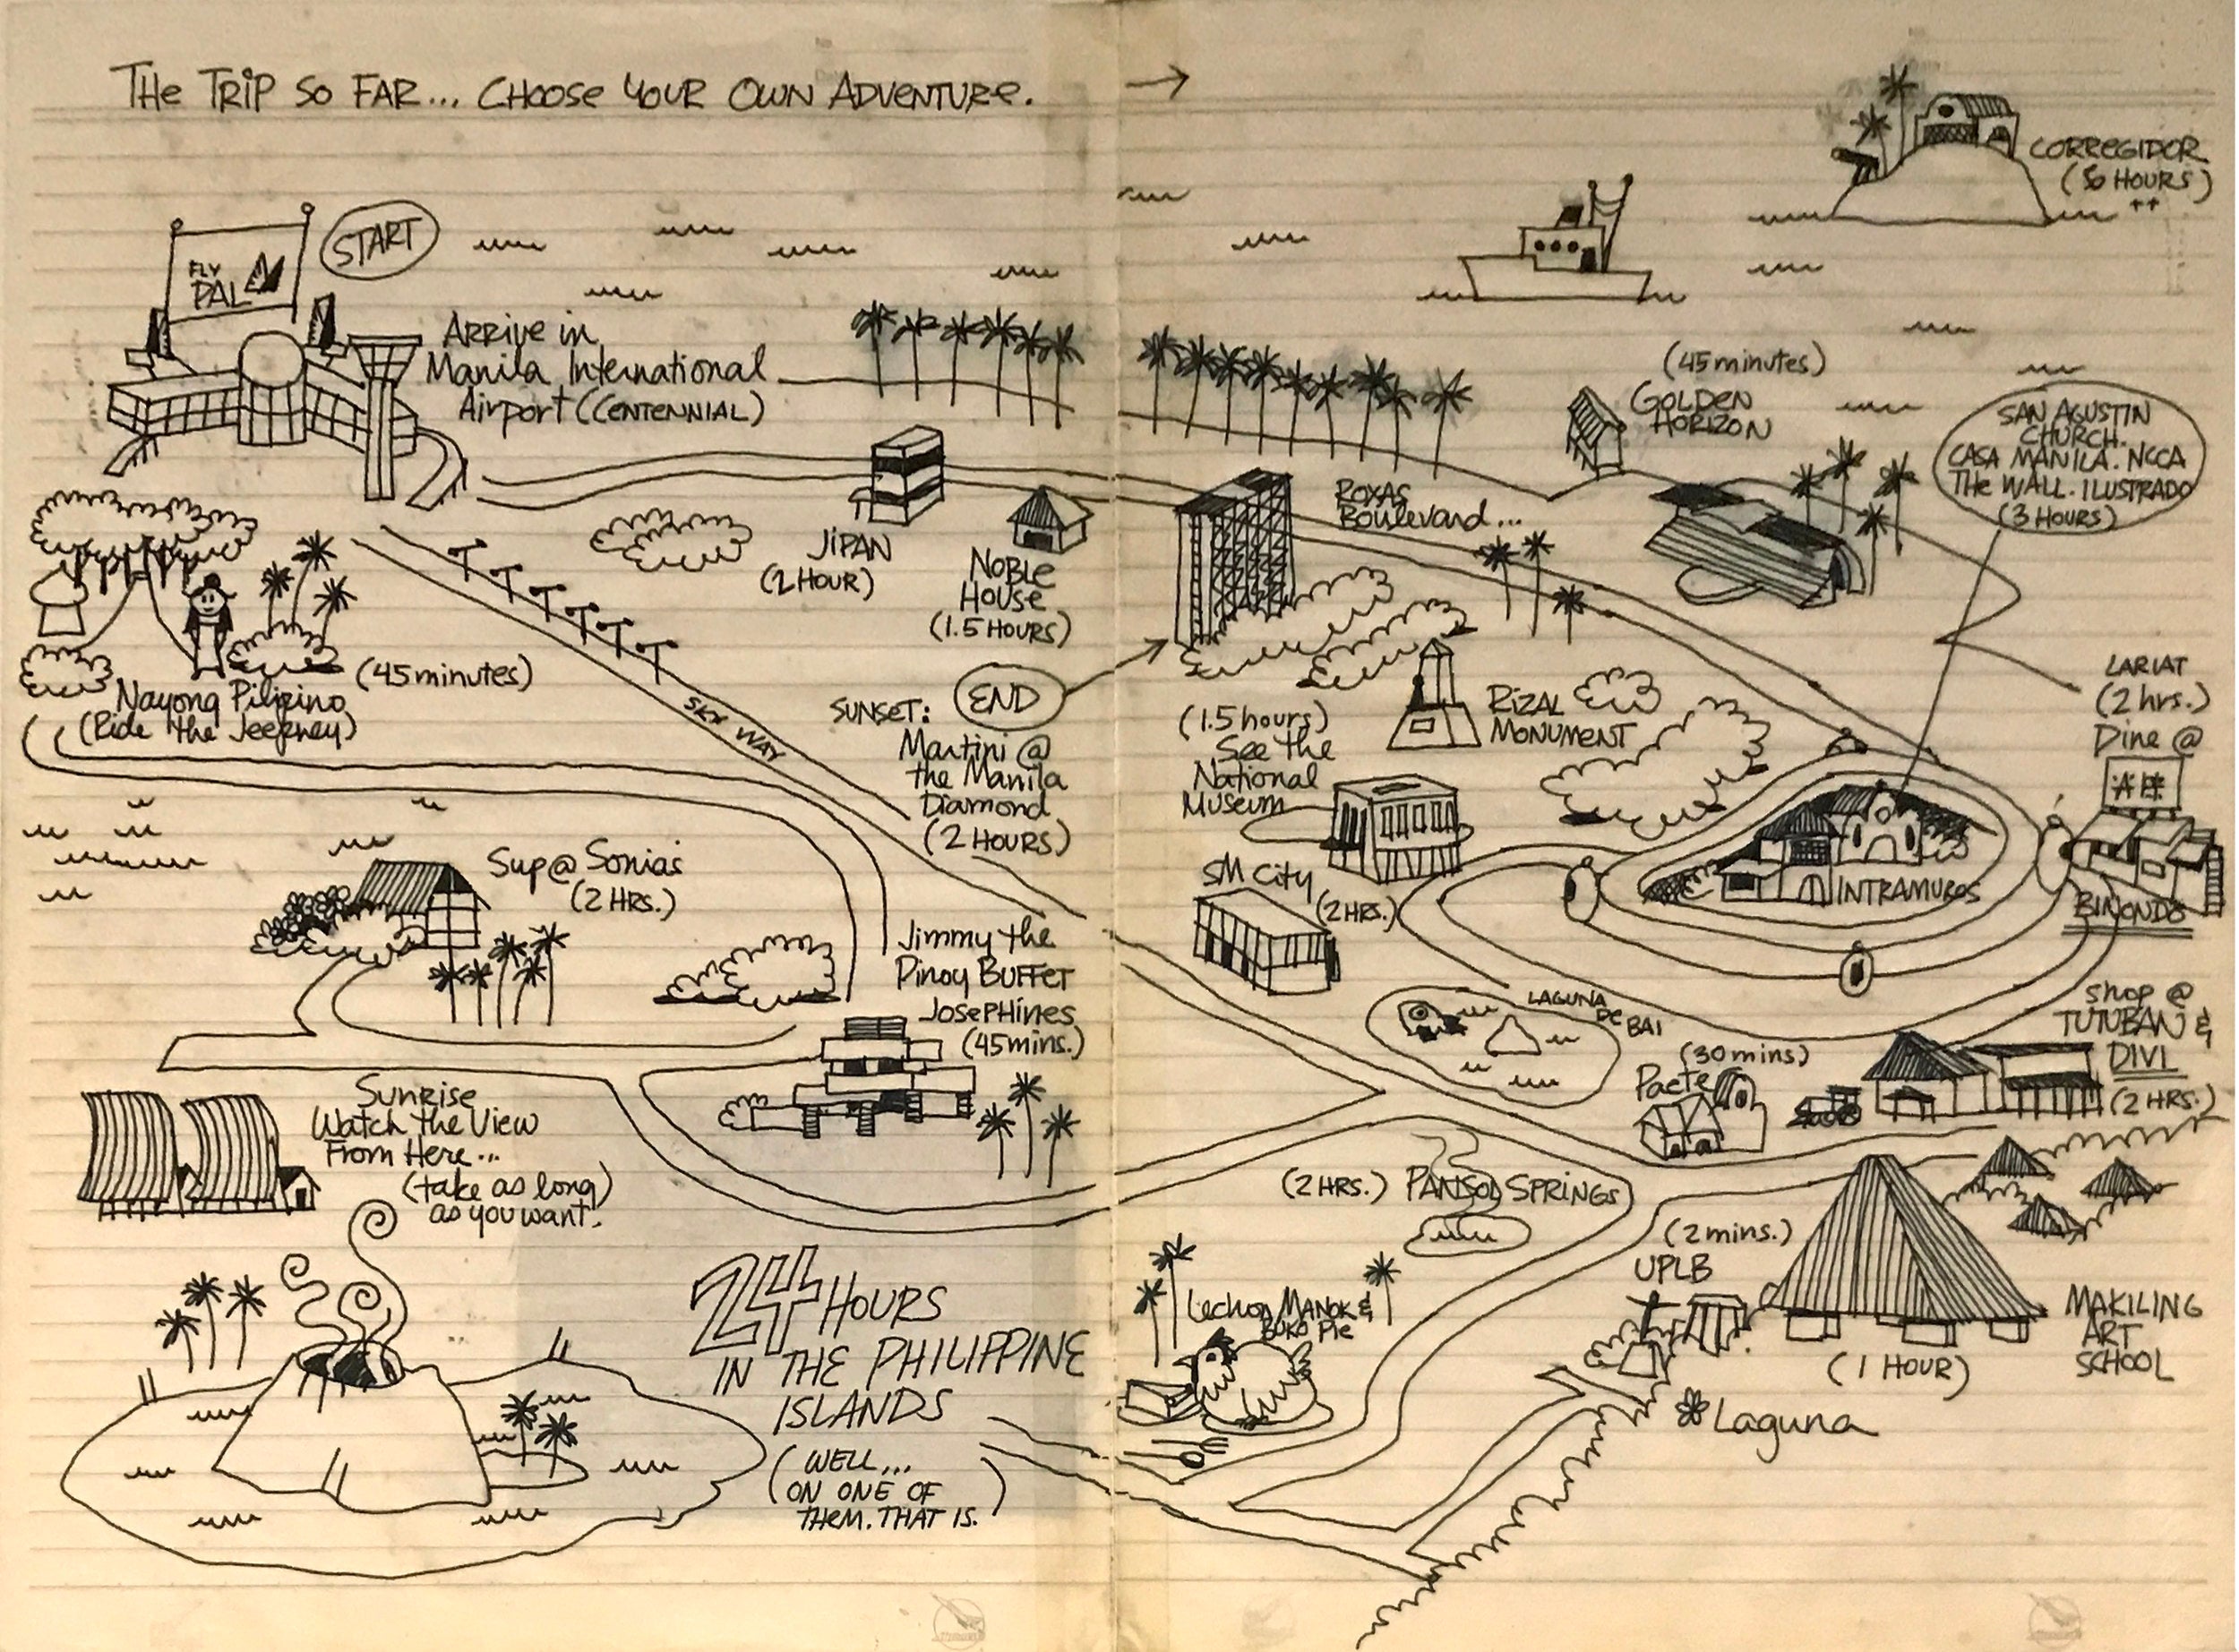 THE TRIP SO FAR... CHOOSE YOUR OWN ADVENTURE.
START
FLY
PAL
ARRIVE in
Manila International
Airport (CENTENNIAL)
CORREGIDOR
HOURS)
++
(45 minutes)
GOLDEN
HORIZON
SAN AGUSTIN
CHURCH.
CASA MANILA. NCCA
THE WALL. ILUSTRADO
(3 HOURS)
ROXAS
Boulevard...
JIPAN
HOUR)
NOBLE
HOUSE
(1.5 HOURS)
Nayong Pilipino
(45 minutes)
(Ride the Jeepney)
SKY WAY
SUNSET:
END
Martini @
the Manila
Diamond
(2 HOURS)
(1.5 hours)
See the
National
Museum
RIZAL
MONUMENT
LARIAT
(2 hrs.)
Dine @
BINONDO
INTRAMUROS
SM City
(2HRS.)
Sup @ Sonias
(2 HRS.)
Jimmy the
Pinoy BUFFET
JOSEPHINES
(45mins.)
LAGUNA
DE
BAI
(30 mins)
Paete
Shop @
TUTUBAN &
DIVI
(2 HRS.)
Sunrise
Watch the View
From Here...
(take as long)
as you want.
(2 HRS.) PANSOL SPRINGS
(2 mins.)
UPLB
MAKILING
ART
SCHOOL
(1 HOUR)
Lechon MANOK &
BUKO Pie
Laguna
24 HOURS
IN THE PHILIPPINE
ISLANDS
(WELL...
ON ONE OF
THEM. THAT IS.)